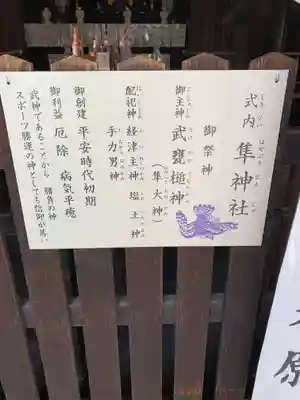 式内 隼神社
しきない はやぶさじんじゃ
御祭神
御主神 武甕槌神
(隼大神)
配祀神 経津主神 塩土神
手力男神
御創建 平安時代初期
御利益 厄除 病気平癒
武神であることから 勝負の神
スポーツ勝運の神としても信仰が篤い
原